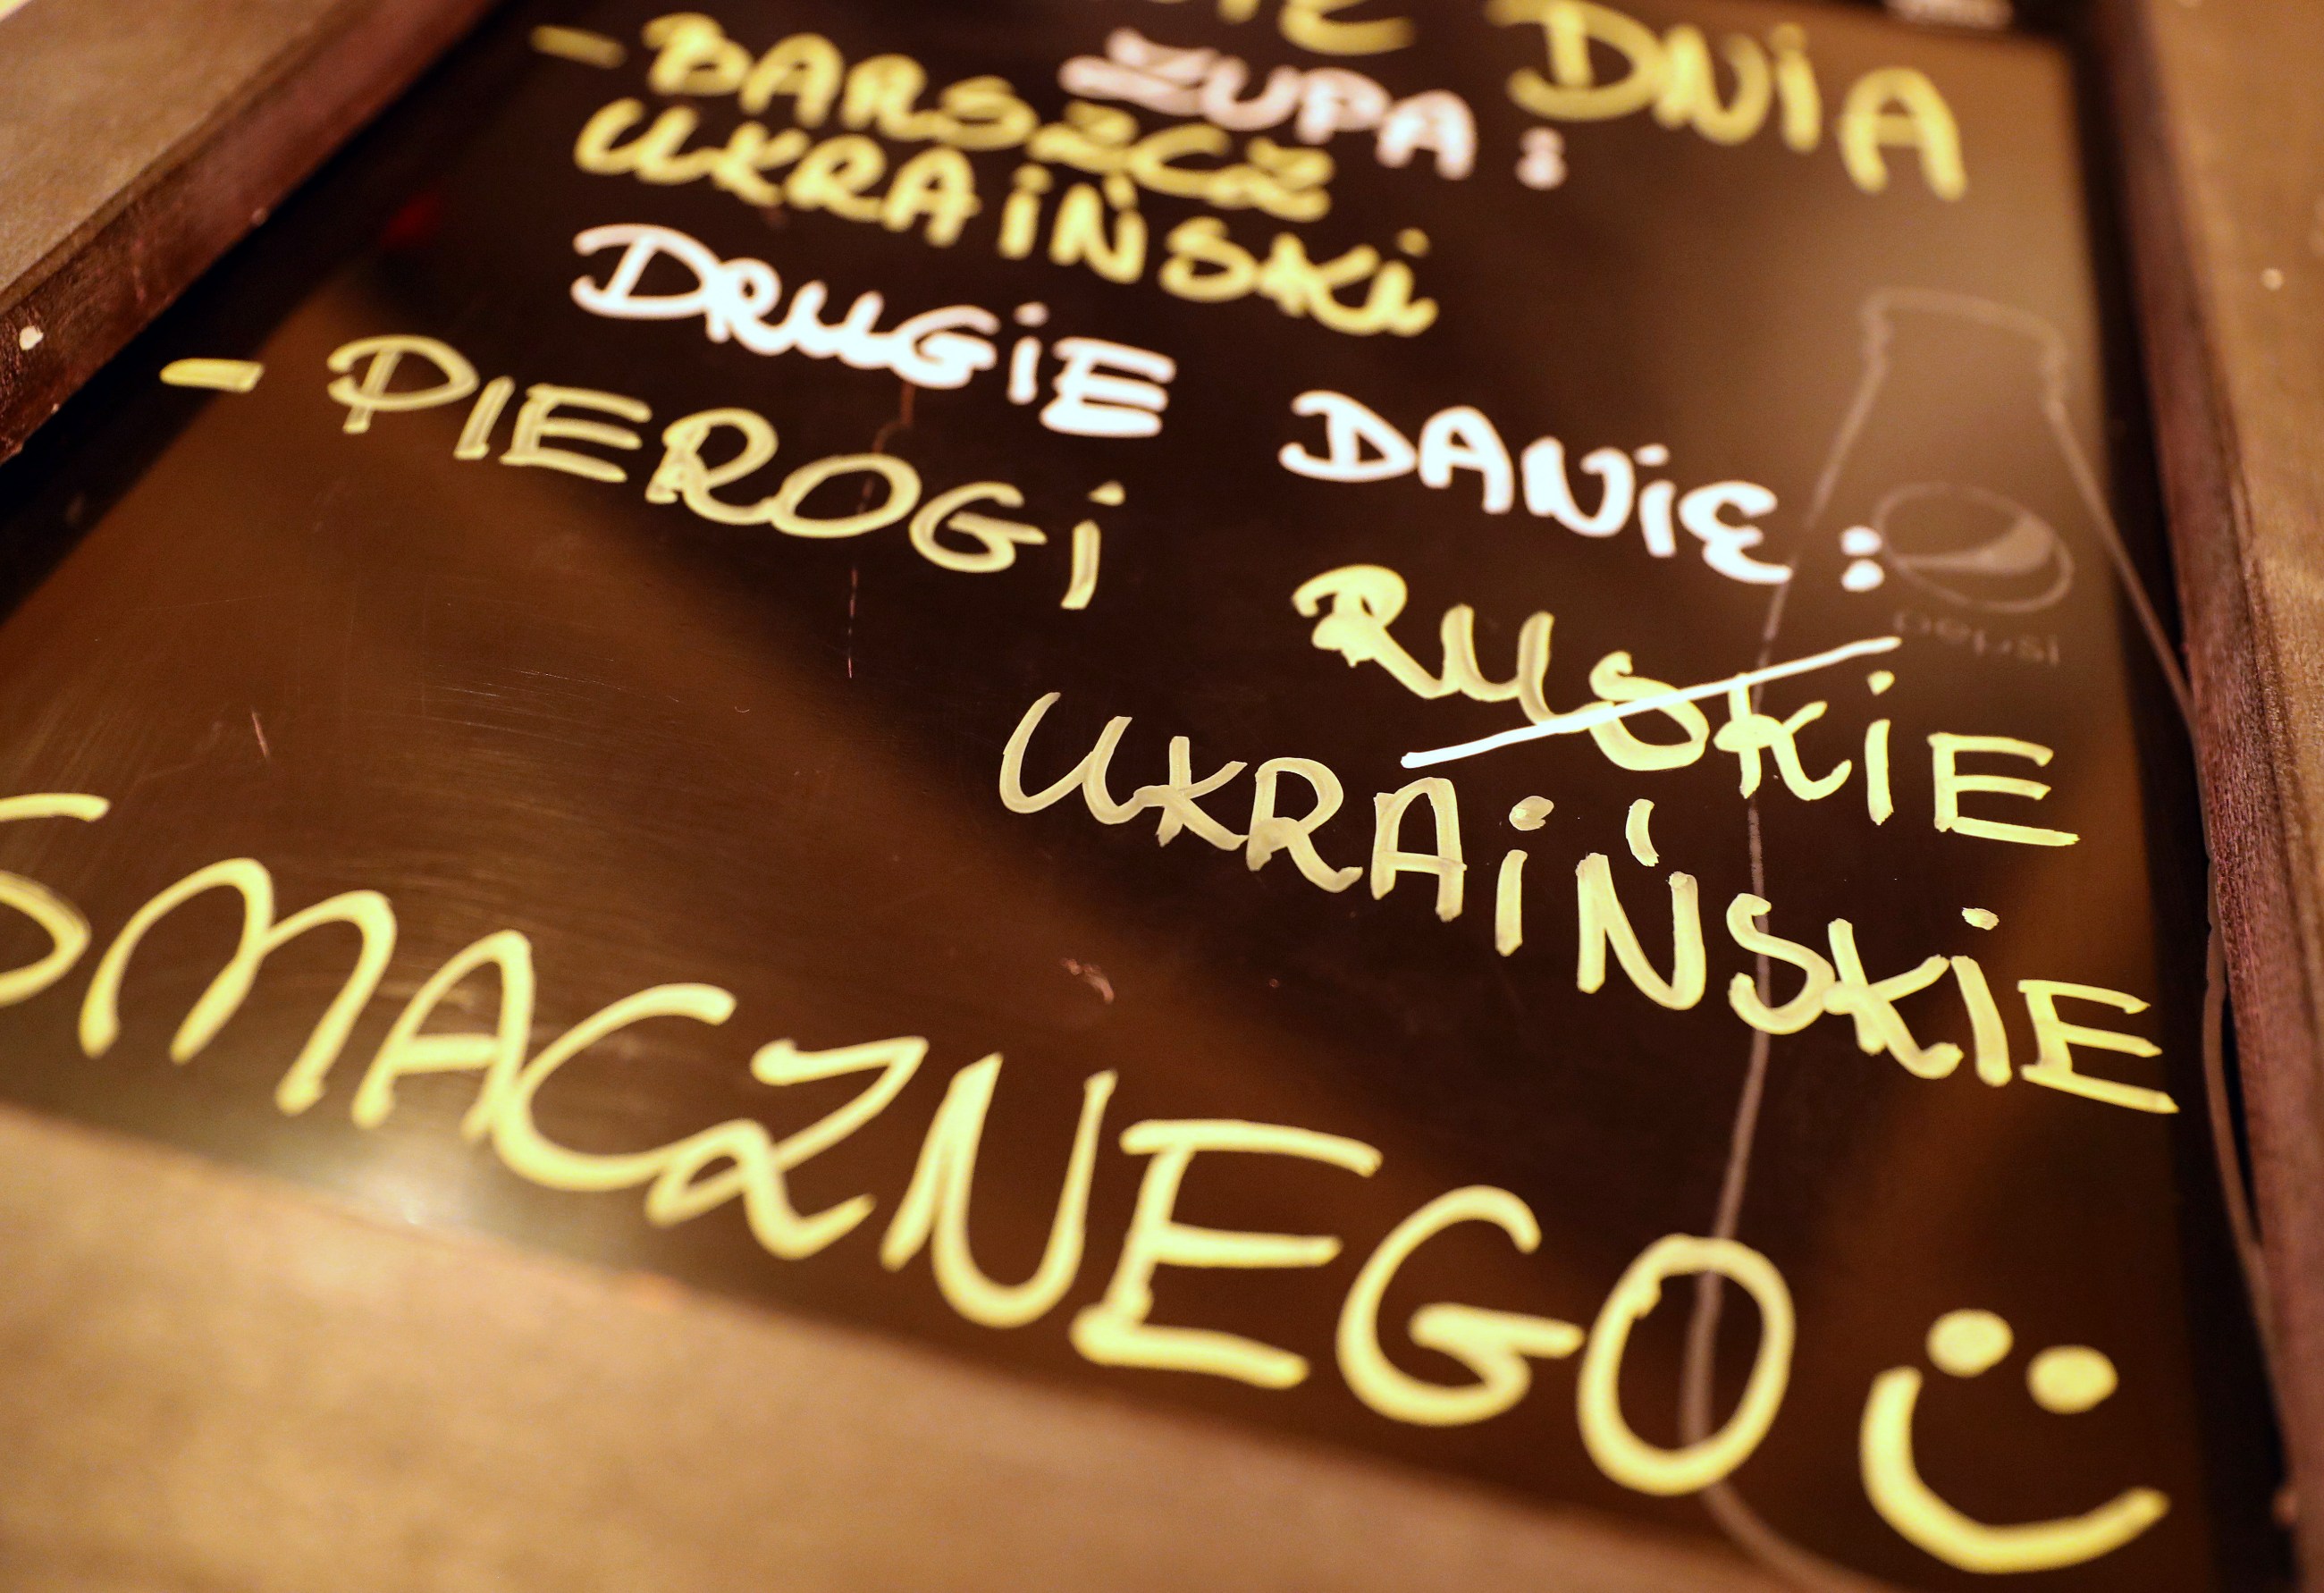 DNIA
ZUPA:
- BARSZCZ
UKRAIŃSKI
DRUGIE DANIE:
- PIEROGI RUSKIE
UKRAIŃSKIE
SMACZNEGO
pepsi